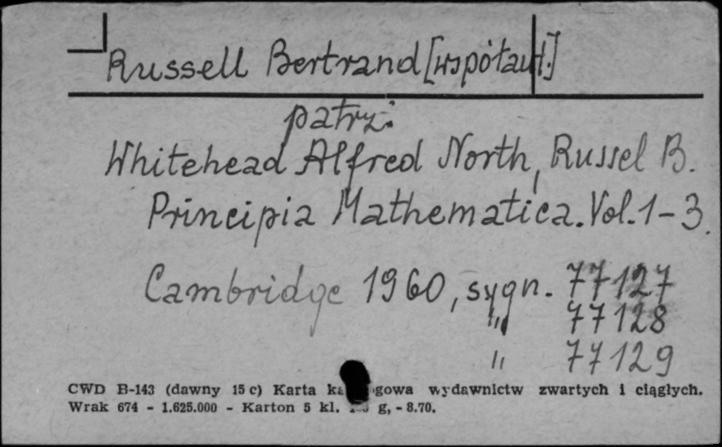 Russell Bertrand [współaut.]
patrz:
Whitehead Alfred North, Russel B.
Principia Mathematica. Vol. 1-3.
Cambridge 1960, sygn. 77127
" 77128
" 77129
CWD B-143 (dawny 15 c) Karta wydawnictw zwartych i ciągłych.
Wrak 674 - 1.625.000 - Karton 5 kl. g, - 8.70.